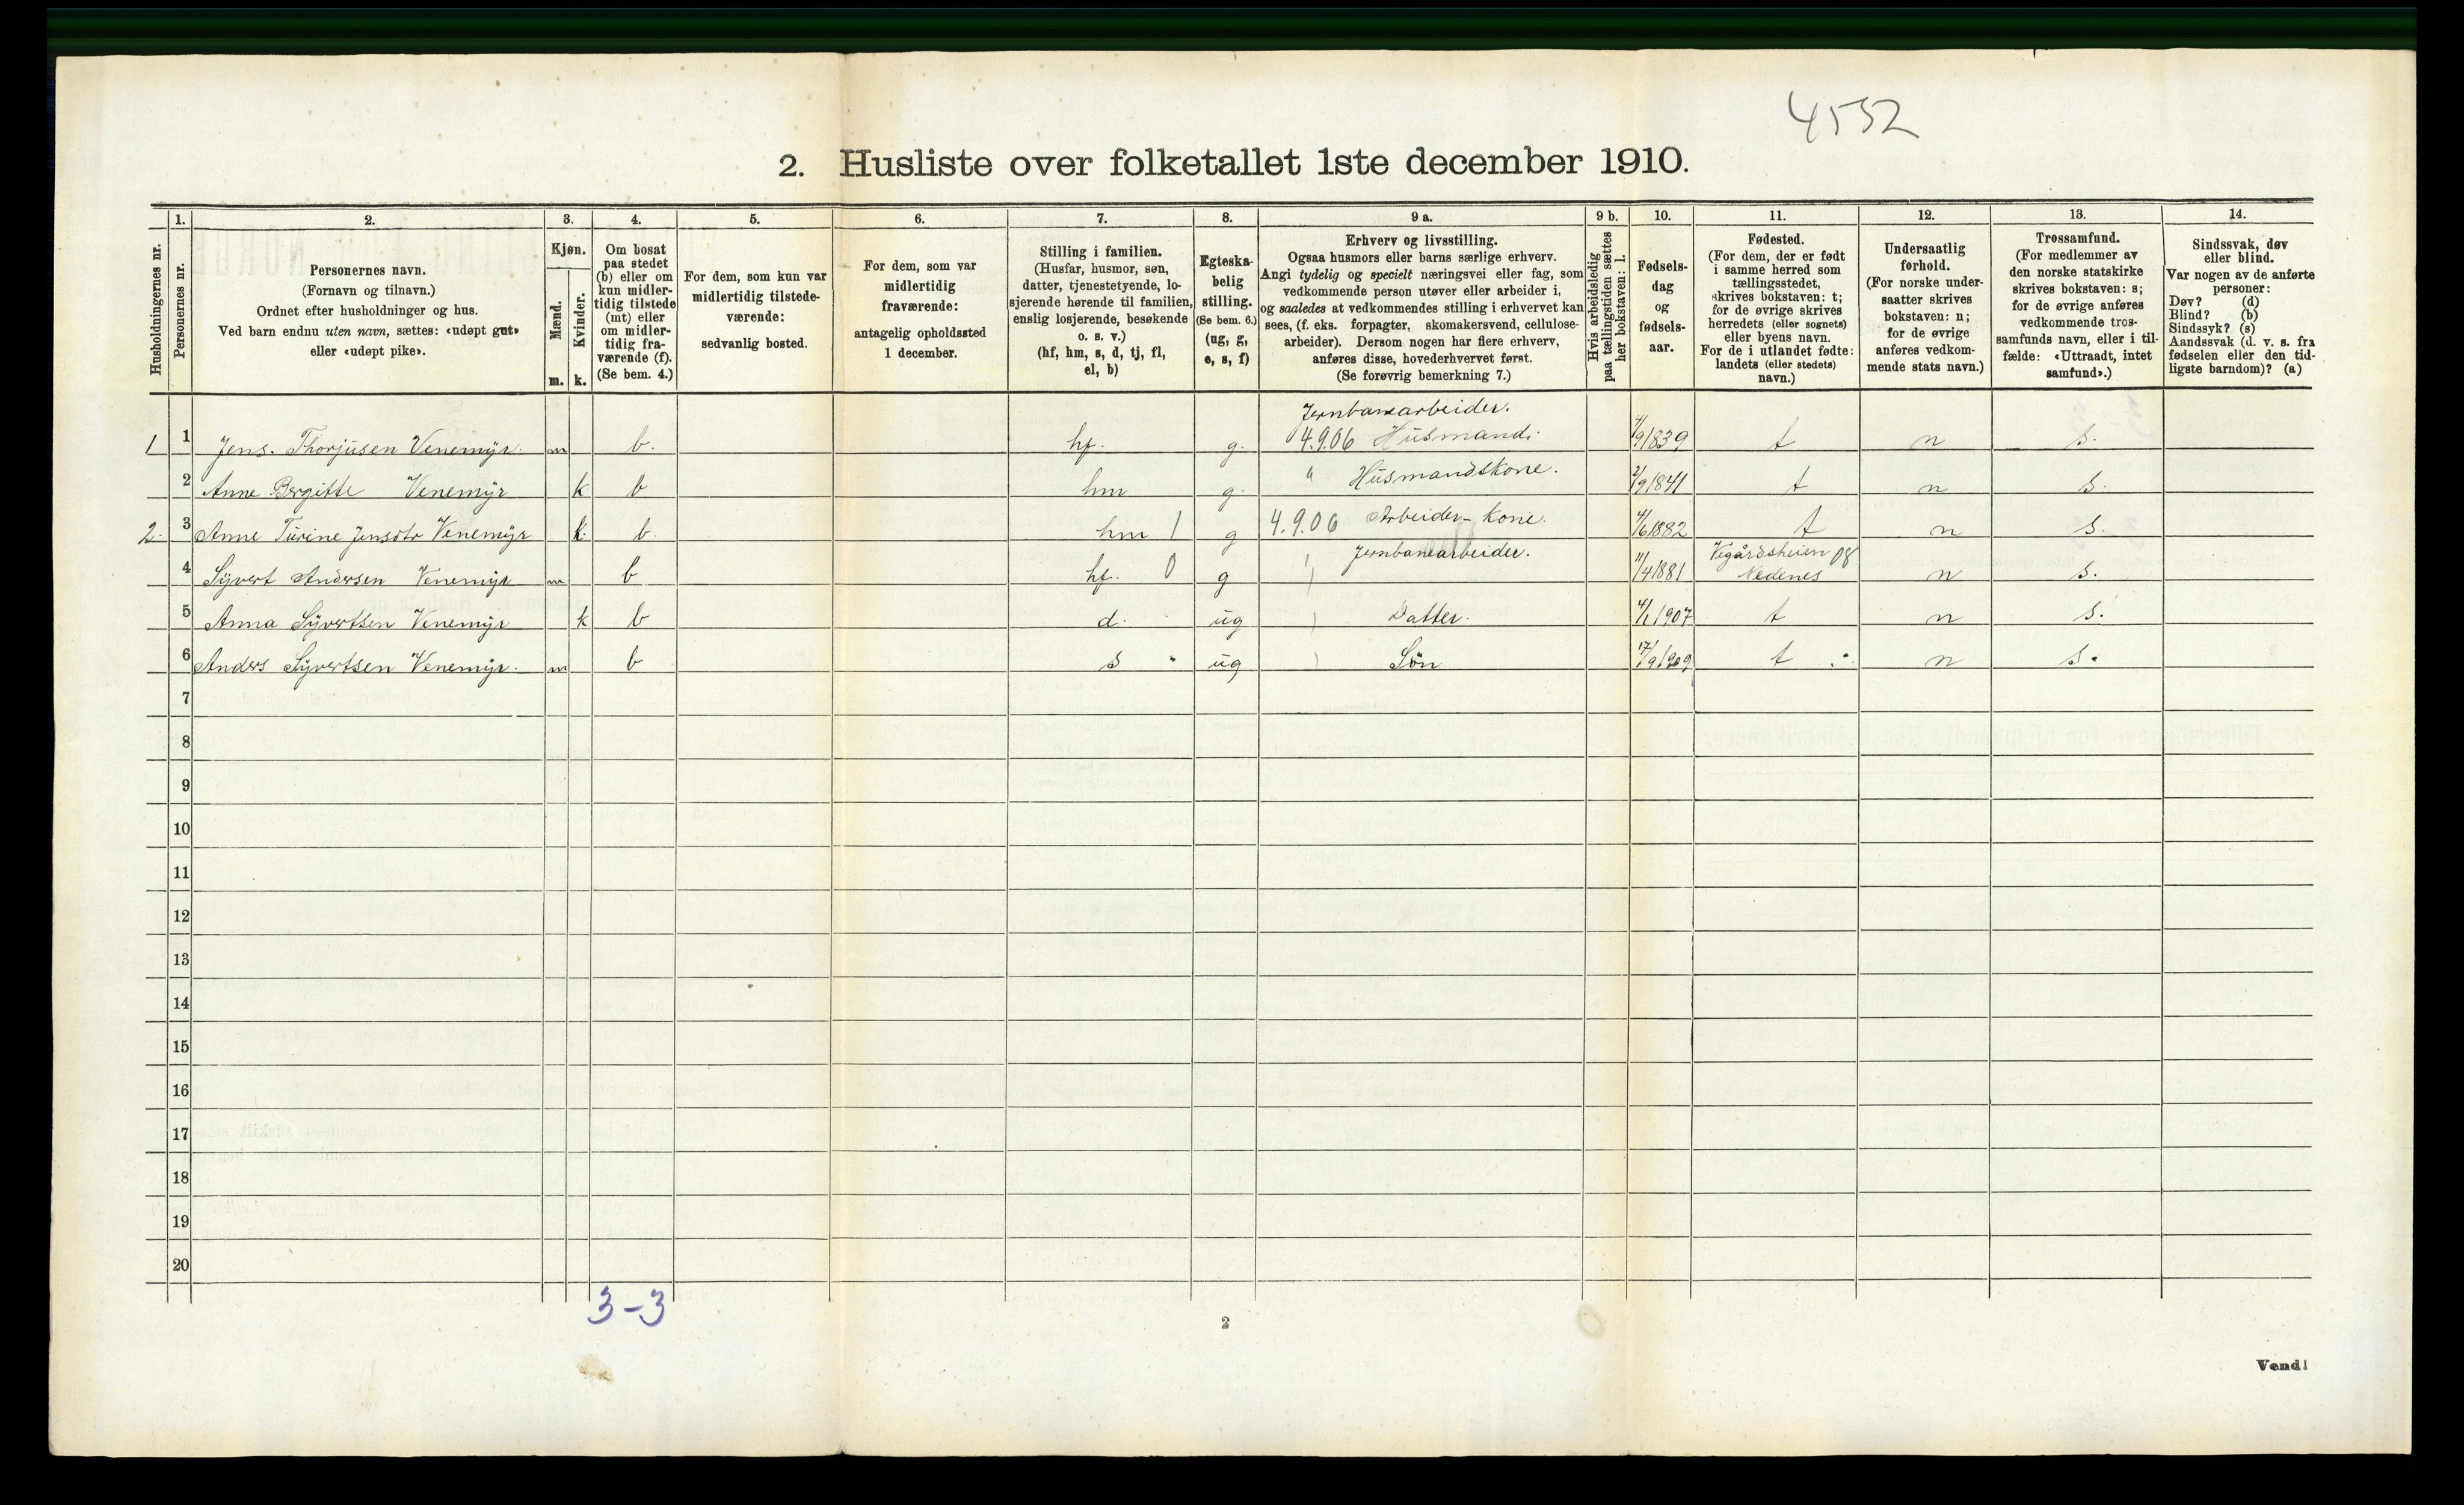 4552
2. Husliste over folketallet 1ste december 1910.
Husholdningernes nr.
1.
Personernes nr.
2.
Personernes navn.
(Fornavn og tilnavn.)
Ordnet efter husholdninger og hus.
Ved barn endnu uten navn, sættes: «udøpt gut»
eller «udøpt pike».
3.
Kjøn.
Mænd.
Kvinder.
m. k.
4.
Om bosat
paa stedet
(b) eller om
kun midler-
tidig tilstede
(mt) eller
om midler-
tidig fra-
værende (f).
(Se bem. 4.)
5.
For dem, som kun var
midlertidig tilstede-
værende:
sedvanlig bosted.
6.
For dem, som var
midlertidig
fraværende:
antagelig opholdssted
1 december.
7.
Stilling i familien.
(Husfar, husmor, søn,
datter, tjenestetyende, lo-
sjerende hørende til familien,
enslig losjerende, besøkende
o. s. v.)
(hf, hm, s, d, tj, fl,
el, b)
8.
Egteska-
belig
stilling.
(Se bem. 6.)
(ug, g,
e, s, f)
9 a.
Erhverv og livsstilling.
Ogsaa husmors eller barns særlige erhverv.
Angi tydelig og specielt næringsvei eller fag, som
vedkommende person utøver eller arbeider i,
og saaledes at vedkommendes stilling i erhvervet kan
sees, (f. eks. forpagter, skomakersvend, cellulose-
arbeider). Dersom nogen har flere erhverv,
anføres disse, hovederhvervet først.
(Se forøvrig bemerkning 7.)
9 b.
Hvis arbeidsledig
paa tællingstiden sættes
her bokstaven: l.
10.
Fødsels-
dag
og
fødsels-
aar.
11.
Fødested.
(For dem, der er født
i samme herred som
tællingsstedet,
skrives bokstaven: t;
for de øvrige skrives
herredets (eller sognets)
eller byens navn.
For de i utlandet fødte:
landets (eller stedets)
navn.)
12.
Undersaatlig
forhold.
(For norske under-
saatter skrives
bokstaven: n;
for de øvrige
anføres vedkom-
mende stats navn.)
13.
Trossamfund.
(For medlemmer av
den norske statskirke
skrives bokstaven: s;
for de øvrige anføres
vedkommende tros-
samfunds navn, eller i til-
fælde: «Uttraadt, intet
samfund».)
14.
Sindssvak, døv
eller blind.
Var nogen av de anførte
personer:
Døv? (d)
Blind? (b)
Sindssyk? (s)
Aandssvak (d. v. s. fra
fødselen eller den tid-
ligste barndom)? (a)
Jernbanearbeider.
1 1 Jens. Thorjusen Venemyr. m b. hf. g. 4.9.06 Husmand. 4/9 1839 t n s.
2 Anne Bergitte Venemyr k b hm g. " Husmandskone. 2/9 1841 t n s.
2. 3 Anne Turine Jensdtr Venemyr k. b. hm 1 g 4.9.06 Arbeider-kone. 4/6 1882 t n s.
4 Syvert Andersen Venemyr m b hf. 0 g Jernbanearbeider. 11/4 1881 Vegårdsheien 08 Nedenes n s.
5 Anna Syvertsen Venemyr k b d. ug Datter. 4/1 1907 t n s.
6 Anders Syvertsen Venemyr. m b s ug Søn 17/9 1909 t n s.
7
8
9
10
11
12
13
14
15
16
17
18
19
20
3-3
2
Vend!